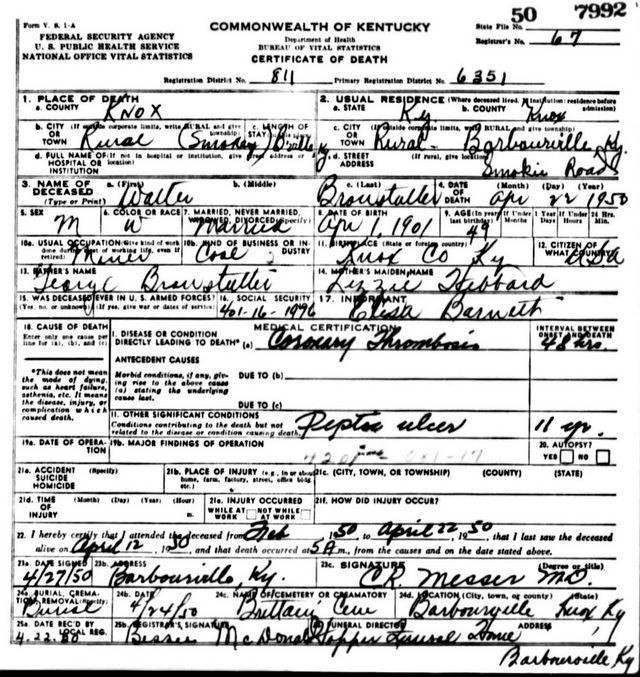 Form V. S. 1-A
50 7992
FEDERAL SECURITY AGENCY
U. S. PUBLIC HEALTH SERVICE
NATIONAL OFFICE VITAL STATISTICS
COMMONWEALTH OF KENTUCKY
Department of Health
BUREAU OF VITAL STATISTICS
CERTIFICATE OF DEATH
State File No.
Registrar's No. 67
Registration District No. 811 Primary Registration District No. 6351
1. PLACE OF DEATH
a. COUNTY Knox
2. USUAL RESIDENCE (Where deceased lived. If institution: residence before admission)
a. STATE Ky b. COUNTY Knox
b. CITY (If outside corporate limits, write RURAL and give township)
OR TOWN Rural (Smokey) B'ville Ky
c. LENGTH OF STAY
c. CITY (If outside corporate limits, write RURAL and give township)
OR TOWN Rural - Barbourville Ky.
d. FULL NAME OF (If not in hospital or institution, give street address or location)
HOSPITAL OR INSTITUTION
d. STREET ADDRESS (If rural, give location)
Smokie Road
3. NAME OF DECEASED (Type or Print)
a. (First) Walter b. (Middle) c. (Last)
4. DATE OF DEATH (Month) (Day) (Year) Apr 22 1950
5. SEX M
6. COLOR OR RACE W
7. MARRIED, NEVER MARRIED, WIDOWED, DIVORCED (Specify) Married
8. DATE OF BIRTH Apr 1, 1901
9. AGE (In years last birthday) 49
If Under 1 Year Months Days
If Under 24 Hrs. Hours Min.
10a. USUAL OCCUPATION (Give kind of work done during most of working life, even if retired) Miner
10b. KIND OF BUSINESS OR INDUSTRY Coal
11. BIRTHPLACE (State or foreign country) Knox Co Ky
12. CITIZEN OF WHAT COUNTRY? USA
13. FATHER'S NAME George
14. MOTHER'S MAIDEN NAME Lizzie Hibbard
15. WAS DECEASED EVER IN U. S. ARMED FORCES?
(Yes, no, or unknown) (If yes, give war or dates of service)
16. SOCIAL SECURITY 401-16-1996
17. INFORMANT Barnett
18. CAUSE OF DEATH
Enter only one cause per line for (a), (b), and (c)
MEDICAL CERTIFICATION
I. DISEASE OR CONDITION
DIRECTLY LEADING TO DEATH* (a) Coronary Thrombosis
INTERVAL BETWEEN ONSET AND DEATH
48 hrs.
*This does not mean the mode of dying, such as heart failure, asthenia, etc. It means the disease, injury, or complication which caused death.
ANTECEDENT CAUSES
Morbid conditions, if any, giving rise to the above cause (a) stating the underlying cause last.
DUE TO (b)
DUE TO (c)
II. OTHER SIGNIFICANT CONDITIONS
Conditions contributing to the death but not related to the disease or condition causing death.
Peptic ulcer 11 yr.
19a. DATE OF OPERATION
19b. MAJOR FINDINGS OF OPERATION
20. AUTOPSY?
YES NO
21a. ACCIDENT (Specify)
SUICIDE
HOMICIDE
21b. PLACE OF INJURY (e.g., in or about home, farm, factory, street, office bldg., etc.)
21c. (CITY, TOWN, OR TOWNSHIP) (COUNTY) (STATE)
21d. TIME OF INJURY (Month) (Day) (Year) (Hour) m.
21e. INJURY OCCURRED
WHILE AT WORK NOT WHILE AT WORK
21f. HOW DID INJURY OCCUR?
22. I hereby certify that I attended the deceased from Feb 1950, to April 22, 1950, that I last saw the deceased
alive on April 12, 1950, and that death occurred at 5 A m., from the causes and on the date stated above.
23a. DATE SIGNED 4/27/50
23b. ADDRESS Barbourville, Ky.
23c. SIGNATURE (Degree or title)
CR Messer M.D.
24a. BURIAL, CREMATION, REMOVAL (Specify) Burial
24b. DATE 4/24/50
24c. NAME OF CEMETERY OR CREMATORY Brittain Cem
24d. LOCATION (City, town, or county) (State)
Barbourville Knox Ky
25a. DATE REC'D BY LOCAL REG. 4-22-50
25b. REGISTRAR'S SIGNATURE Bessie McDonald
FUNERAL DIRECTOR ADDRESS
Hopper Funeral Home
Barbourville Ky